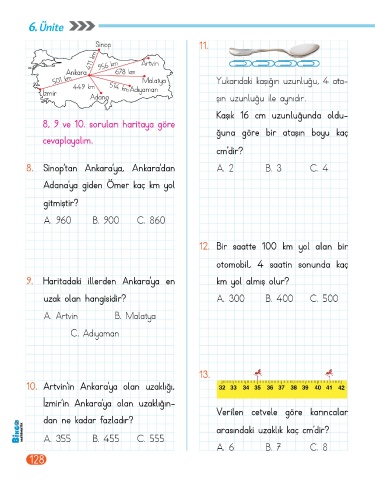 6. Ünite
Sinop
411 km
956 km
Artvin
Ankara
678 km
501 km
Malatya
449 km
514 km
Adıyaman
İzmir
Adana
8, 9 ve 10. soruları haritaya göre
cevaplayalım.
8. Sinop'tan Ankara'ya, Ankara'dan
Adana'ya giden Ömer kaç km yol
gitmiştir?
A. 960 B. 900 C. 860
9. Haritadaki illerden Ankara'ya en
uzak olan hangisidir?
A. Artvin B. Malatya
C. Adıyaman
10. Artvin'in Ankara'ya olan uzaklığı,
İzmir'in Ankara'ya olan uzaklığın-
dan ne kadar fazladır?
A. 355 B. 455 C. 555
BİNGO
128
11.
Yukarıdaki kaşığın uzunluğu, 4 ata-
şın uzunluğu ile aynıdır.
Kaşık 16 cm uzunluğunda oldu-
ğuna göre bir ataşın boyu kaç
cm'dir?
A. 2 B. 3 C. 4
12. Bir saatte 100 km yol alan bir
otomobil, 4 saatin sonunda kaç
km yol almış olur?
A. 300 B. 400 C. 500
13.
32 33 34 35 36 37 38 39 40 41 42
Verilen cetvele göre karıncalar
arasındaki uzaklık kaç cm'dir?
A. 6 B. 7 C. 8